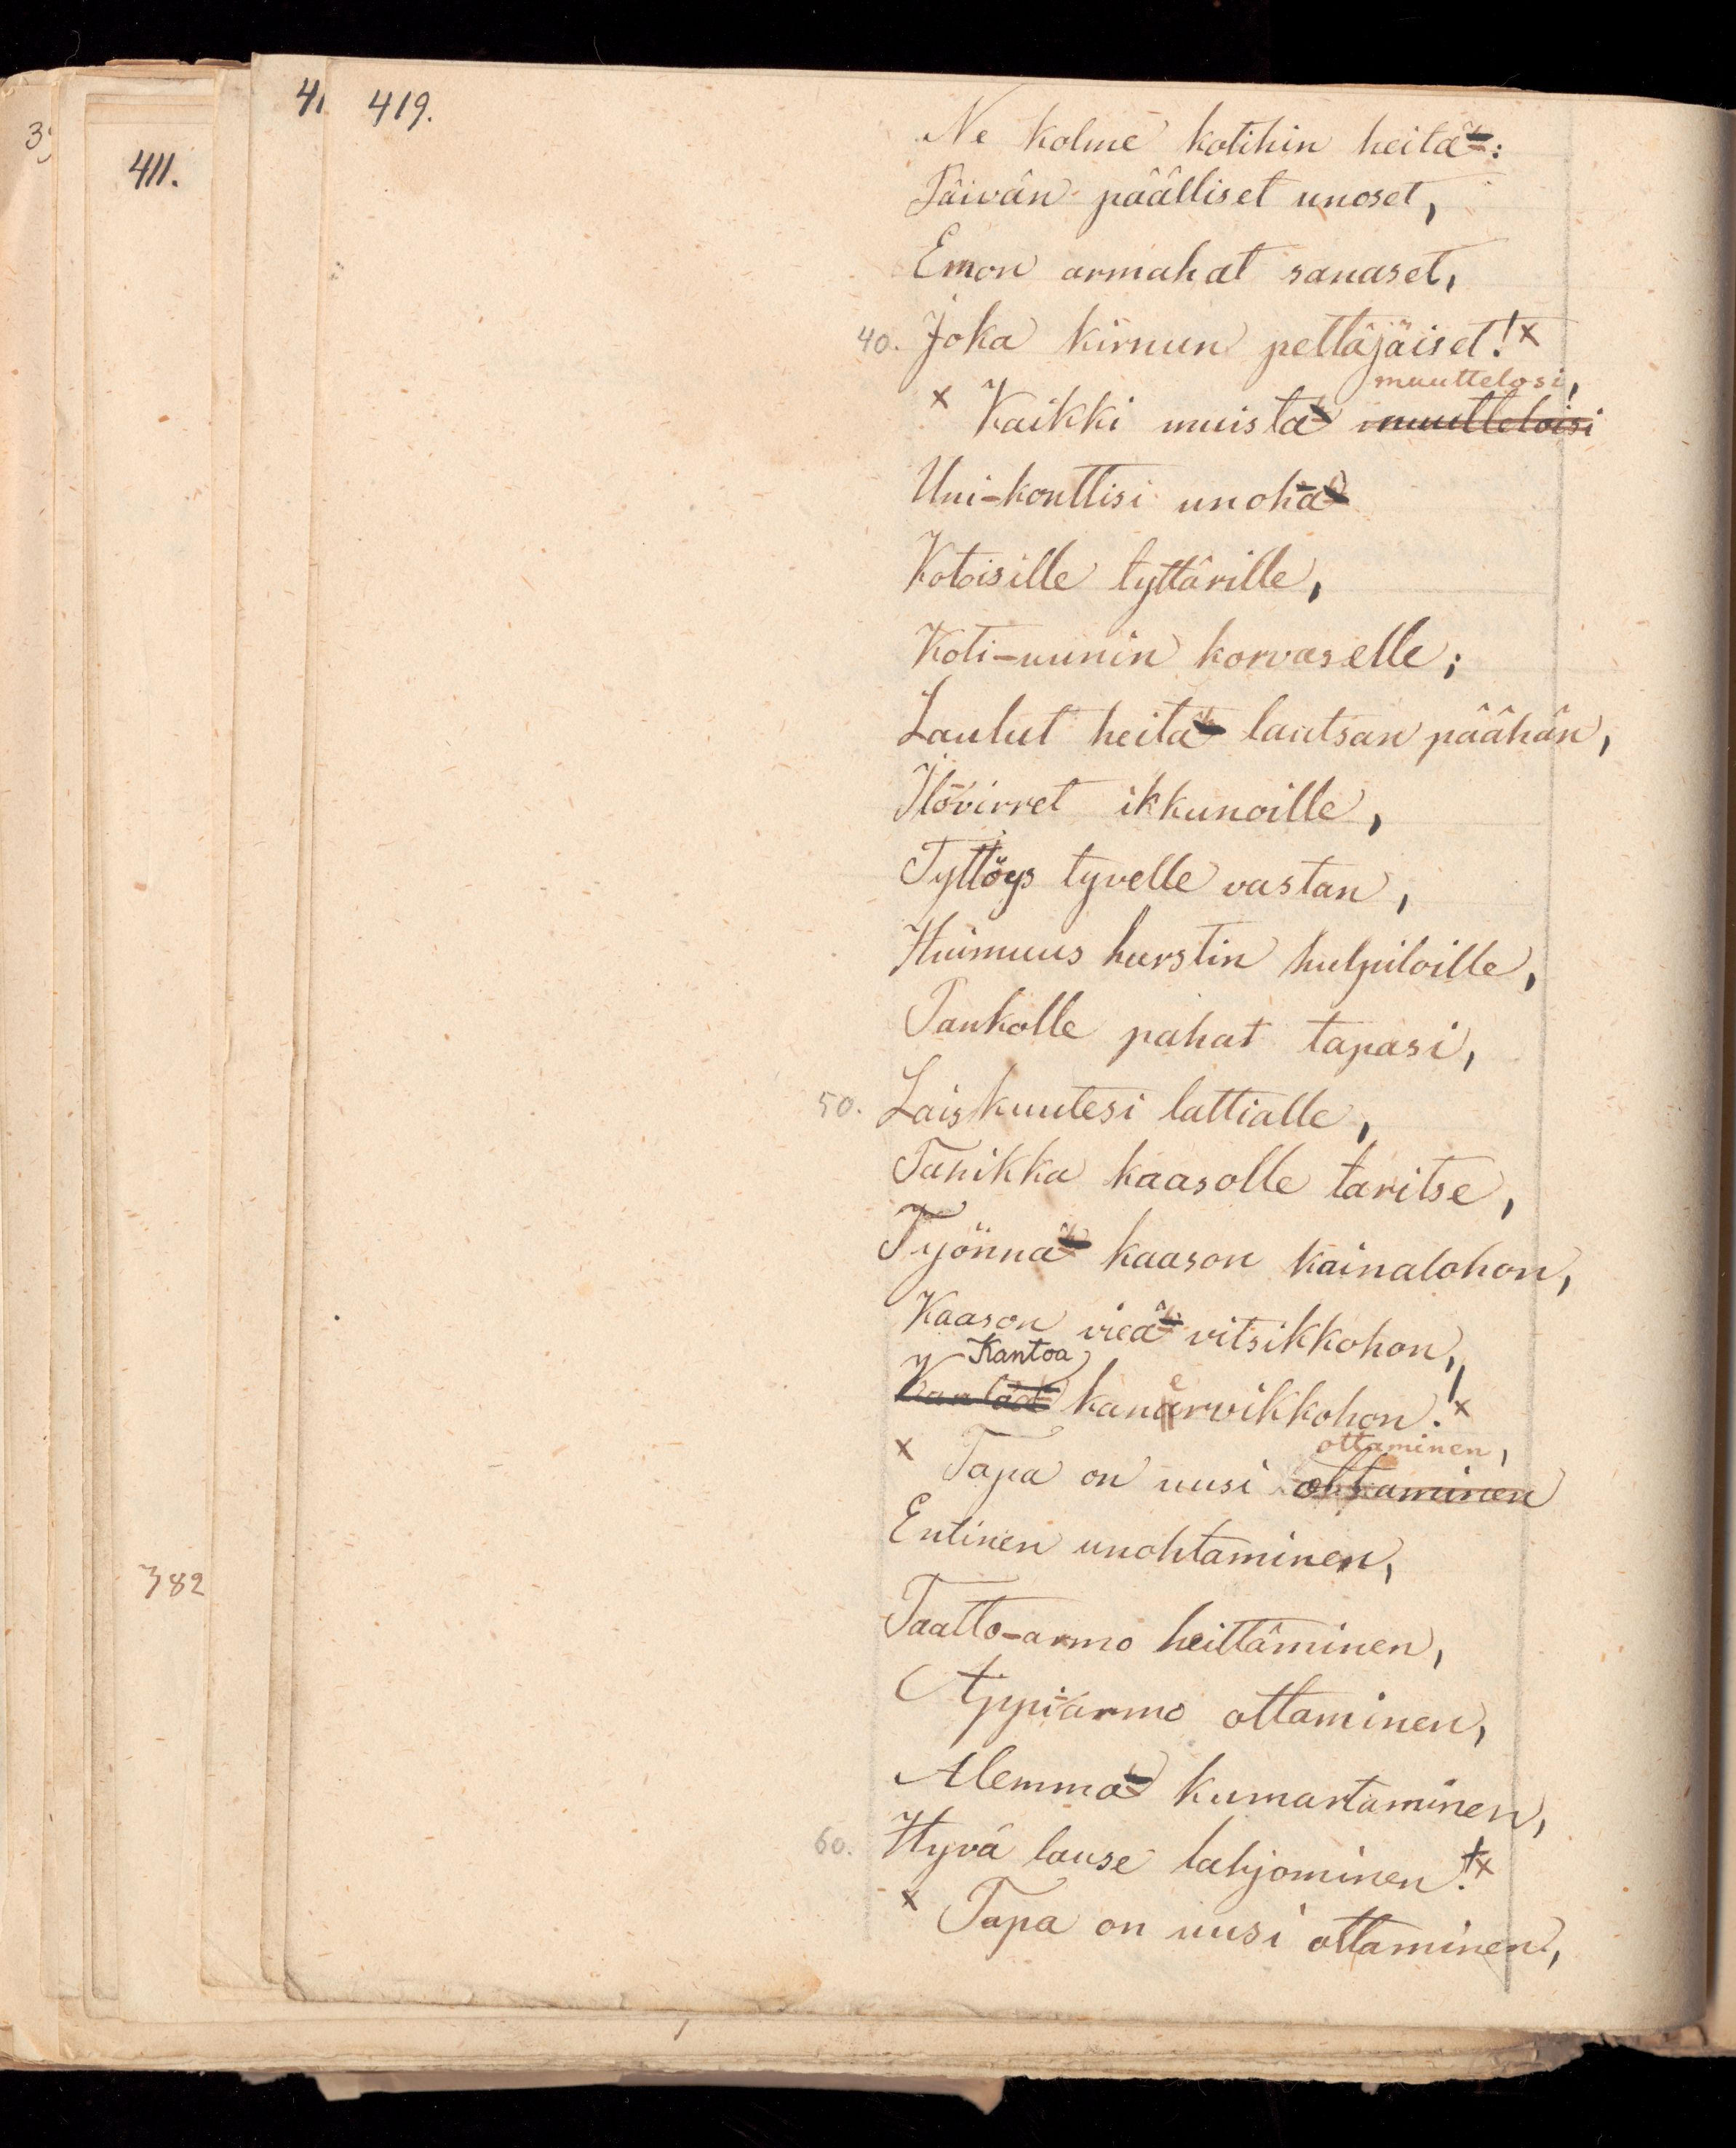 419.
411.
382
Ne kolme kotihin heitä:
Päivän päälliset unoset,
Emon armahat sanaset,
40. Joka kirnun pettäjäiset!x
muuttelosi,
x Kaikki muista muutteloisi
Uni-konttisi unoha
Kotoisille tyttärille,
Koti-uunin korvaselle;
Laulut heitä lautsan päähän,
Ilo-virret ikkunoille,
Tyttöys tyvelle vastan,
Huimuus hurstin hulpiloille,
Pankolle pahat tapasi,
50. Laiskuutesi lattialle,
Tahikka kaasolle taritse,
Työnnä kaason kainalohon,
Kaason vieä vitsikkohon,
Kantoa
kanervikkohon!x
ottaminen,
x Tapa on uusi
Entinen unohtaminen,
Taatto-armo heittäminen,
Appi-armo ottaminen,
Alemma kumartaminen,
60. Hyvä lause lahjominen!x
x Tapa on uusi ottaminen,